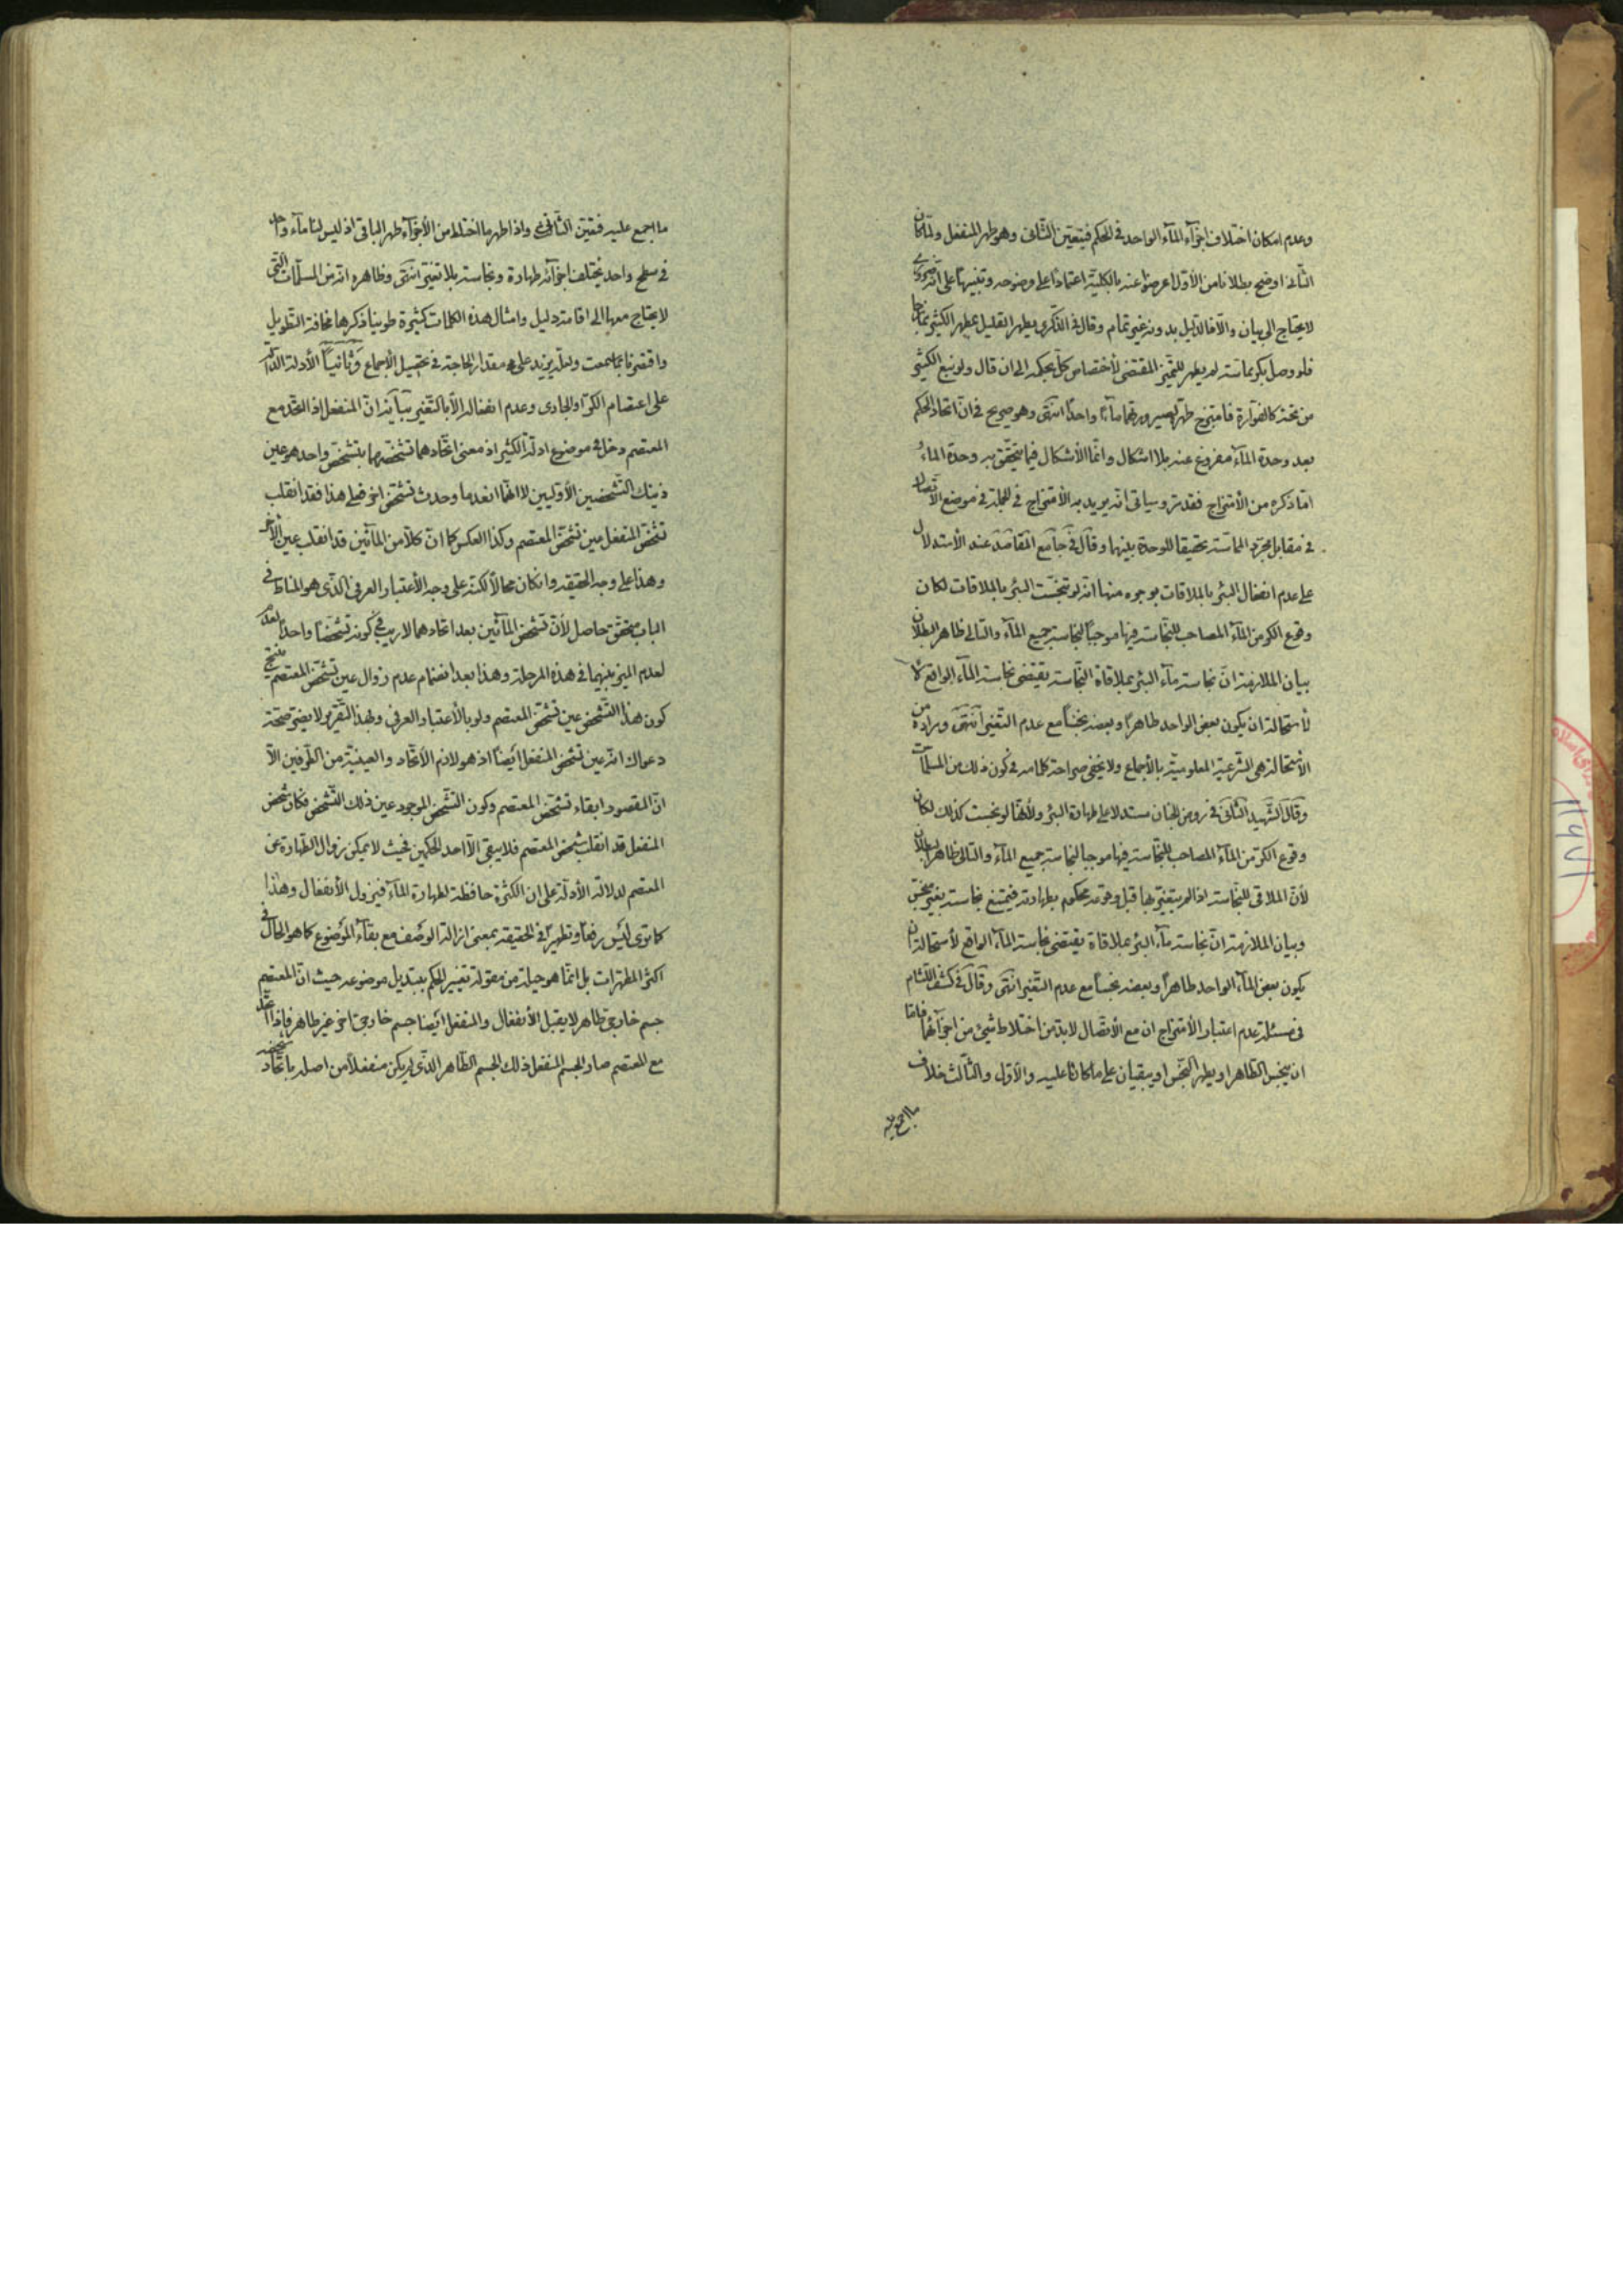 وعدم امكان اختلاف اجزآء المآء الواحد فى الحكم فيتعين الثانى وهو طهر المنفعل ولما كان
الثانى اوضح بطلانا من الأول اعرضوا عنه بالكلية اعتمادا على وضوحه وتنبيها على انه ضرورى
لا يحتاج الى بيان والا فالدليل بدونه غير تمام وقال فى الذكرى يطهر القليل بمطهر الكثير ممازجا
فلو وصل بكر مماسة لم يطهر للتميز المقتضى لأختصاص كل بحكمه الى ان قال ولو نبع الكثير
من تحته كالفوارة فامتزج طهر لصيرورتهما مآء واحدا انتهى وهو صريح فى ان اتحاد الحكم
بعد وحدة المآء مفروغ عنه بلا اشكال وانما الأشكال فيما يتحقق به وحدة المآء و
اما ذكره من الأمتزاج فقد مر وسياتى انه يريد به الأمتزاج فى الجملة فى موضع الأتصال
فى مقابل مجرد المماسة تحقيقا للوحدة بينهما وقال فى جامع المقاصد عند الأستدلال
على عدم انفعال البئر بالملاقات بوجوه منها انه لو تنجست البئر بالملاقات لكان
وقوع الكر من المآء المصاحب للنجاسة فيها موجبا لنجاسة جميع المآء والتالى ظاهر البطلان
بيان الملازمة ان نجاسة مآء البئر بملاقاة النجاسة يقتضى نجاسة المآء الواقع
لأستحالة ان يكون بعض الواحد طاهرا وبعضه نجسا مع عدم التغير انتهى ومراده من
الأستحالة هى الشرعية المعلومية بالأجماع ولا يخفى صراحة كلامه فى كون ذلك من المسلمات
وقال الشهيد الثانى فى روض الجنان مستدلا على طهارة البئر ولأنها لو نجست كذلك لكان
وقوع الكر من المآء المصاحب للنجاسة فيها موجبا لنجاسة جميع المآء والتالى ظاهر البطلان
لأن الملاقى للنجاسة اذا لم يتغير بها قبل وقوعه محكوم بطهارته فيمتنع نجاسته بغير منجس
وبيان الملازمة ان نجاسة مآء البئر بملاقاة يقتضى نجاسة المآء الواقع لأستحالة ان
يكون بعض المآء الواحد طاهرا وبعضه نجسا مع عدم التغير انتهى وقال فى كشف اللثام
فى مسئلة عدم اعتبار الأمتزاج ان مع الأتصال لا بد من اختلاط شيئ من اجزآئهما فاما
ان ينجس الطاهر او يطهر النجس او يبقيان على ما كانا عليه والأول والثالث خلاف
ما اجمع عليه
ما اجمع عليه فتعين الثانى واذا طهر ما اختلط من الأجزآء طهر الباقى اذ ليس لنا مآء واحد
فى سطح واحد يختلف اجزآئه طهارة ونجاسة بلا تغير انتهى وظاهره انه من المسلمات التى
لا يحتاج معها الى اقامة دليل وامثال هذه الكلمات كثيرة طوينا ذكرها مخافة التطويل
واقتصرنا بما سمعت ولعله يزيد على مقدار الحاجة فى تحصيل الأجماع وثانيا الأدلة الدالة
على اعتصام الكر والجارى وعدم انفعاله الا بالتغير ببيان ان المنفعل اذا اتحد مع
المعتصم دخل فى موضوع ادلة الكثير اذ معنى اتحادهما تشخصهما بتشخص واحد هو عين
ذينك التشخصين الأوليين لا انهما انعدما وحدث تشخص اخر فعلى هذا فقد انقلب
تشخص المنفعل عين تشخص المعتصم وكذا العكس كما ان كلا من المآئين قد انقلب عين الأخر
وهذا على وجه الحقيقة وان كان محالا لكنه على وجه الأعتبار العرفى الذى هو المناط فى
الباب متحقق حاصل لأن تشخص المآئين بعد اتحادهما لا ريب فى كونه تشخصا واحدا بعد
لعدم الميز بينهما فى هذه المرحلة وهذا بعد انضمام عدم زوال عين تشخص المعتصم ينتج
كون هذا التشخص عين تشخص المعتصم ولو بالأعتبار العرفى وبهذا التقرير لا يضر صحة
دعواك انه عين تشخص المنفعل ايضا اذ هو لازم الأتحاد والعينية من الطرفين الا
ان المقصود ابقاء تشخص المعتصم وكون التشخص الموجود عين ذلك التشخص فكان شخص
المنفعل قد انقلب شخص المعتصم فلا يبقى الا احد الحكمين فحيث لا يمكن زوال الطهارة عن
المعتصم لدلالة الأدلة على ان الكثرة حافظة لطهارة المآء فيزول الأنفعال وهذا
كما ترى ليس رفعا وتطهيرا فى الحقيقة بمعنى ازالة الوصف مع بقآء الموضوع كما هو الحال فى
اكثر المطهرات بل انما هو حيلة من مقولة تغيير الحكم بتبديل موضوعه حيث ان المعتصم
جسم خارجى طاهر لا يقبل الأنفعال والمنفعل ايضا جسم خارجى اخر غير طاهر فاذا اتحد
مع المعتصم صار الجسم المنفعل ذلك الجسم الطاهر الذى لم يكن منفعلا من اصله باتحاد شخصه